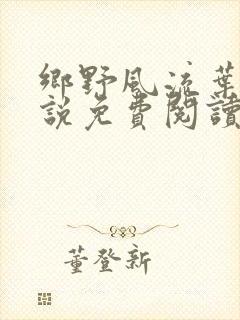 鄉野風流葉
說免費閱讀
董登新